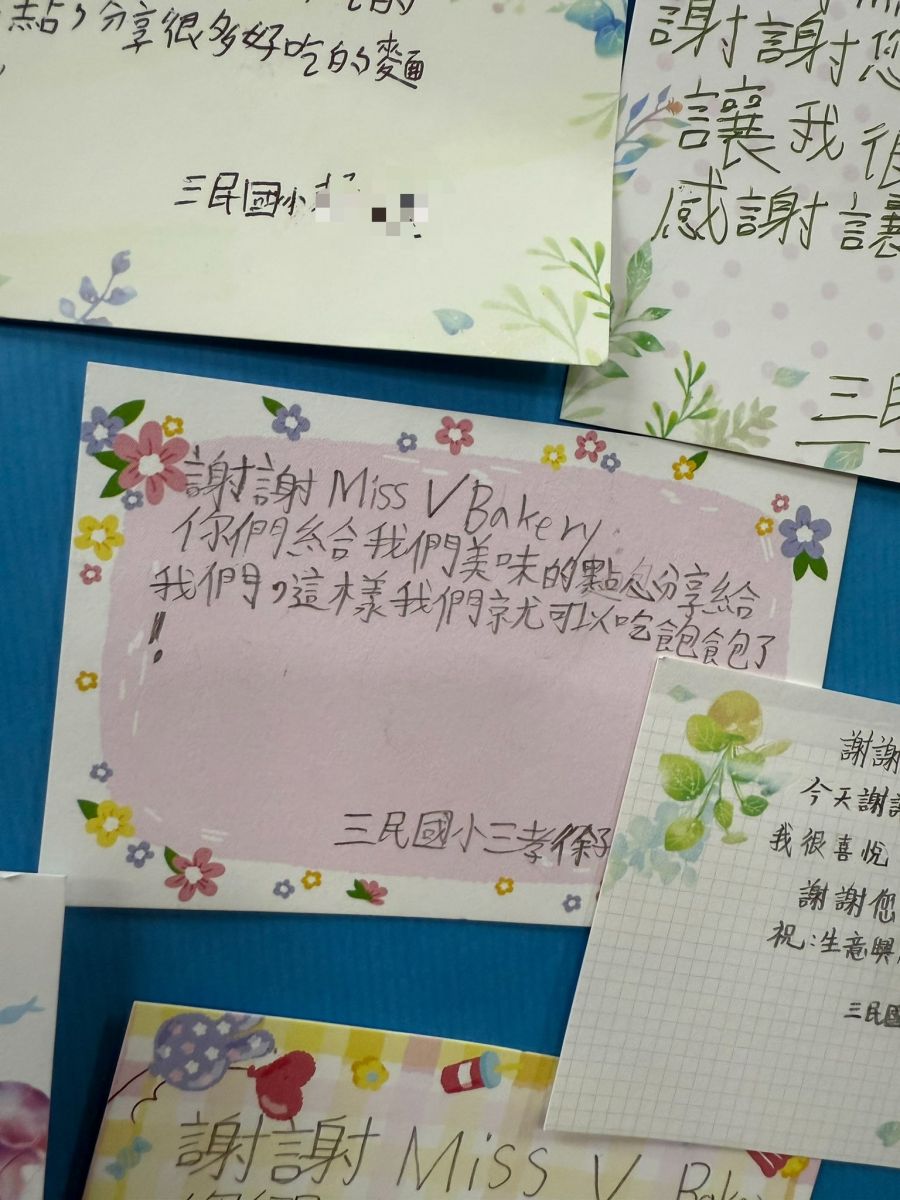 點，分享很多好吃的麵
三民國小
謝謝您
讓我很
感謝讓
三民
謝謝 Miss V Bakery
你們給我們美味的點心分享給
我們，這樣我們就可以吃飽飽了
!!
三民國小三孝徐子
謝謝
今天謝謝
我很喜悅
謝謝您
祝：生意興
三民國
謝謝 Miss V Bake